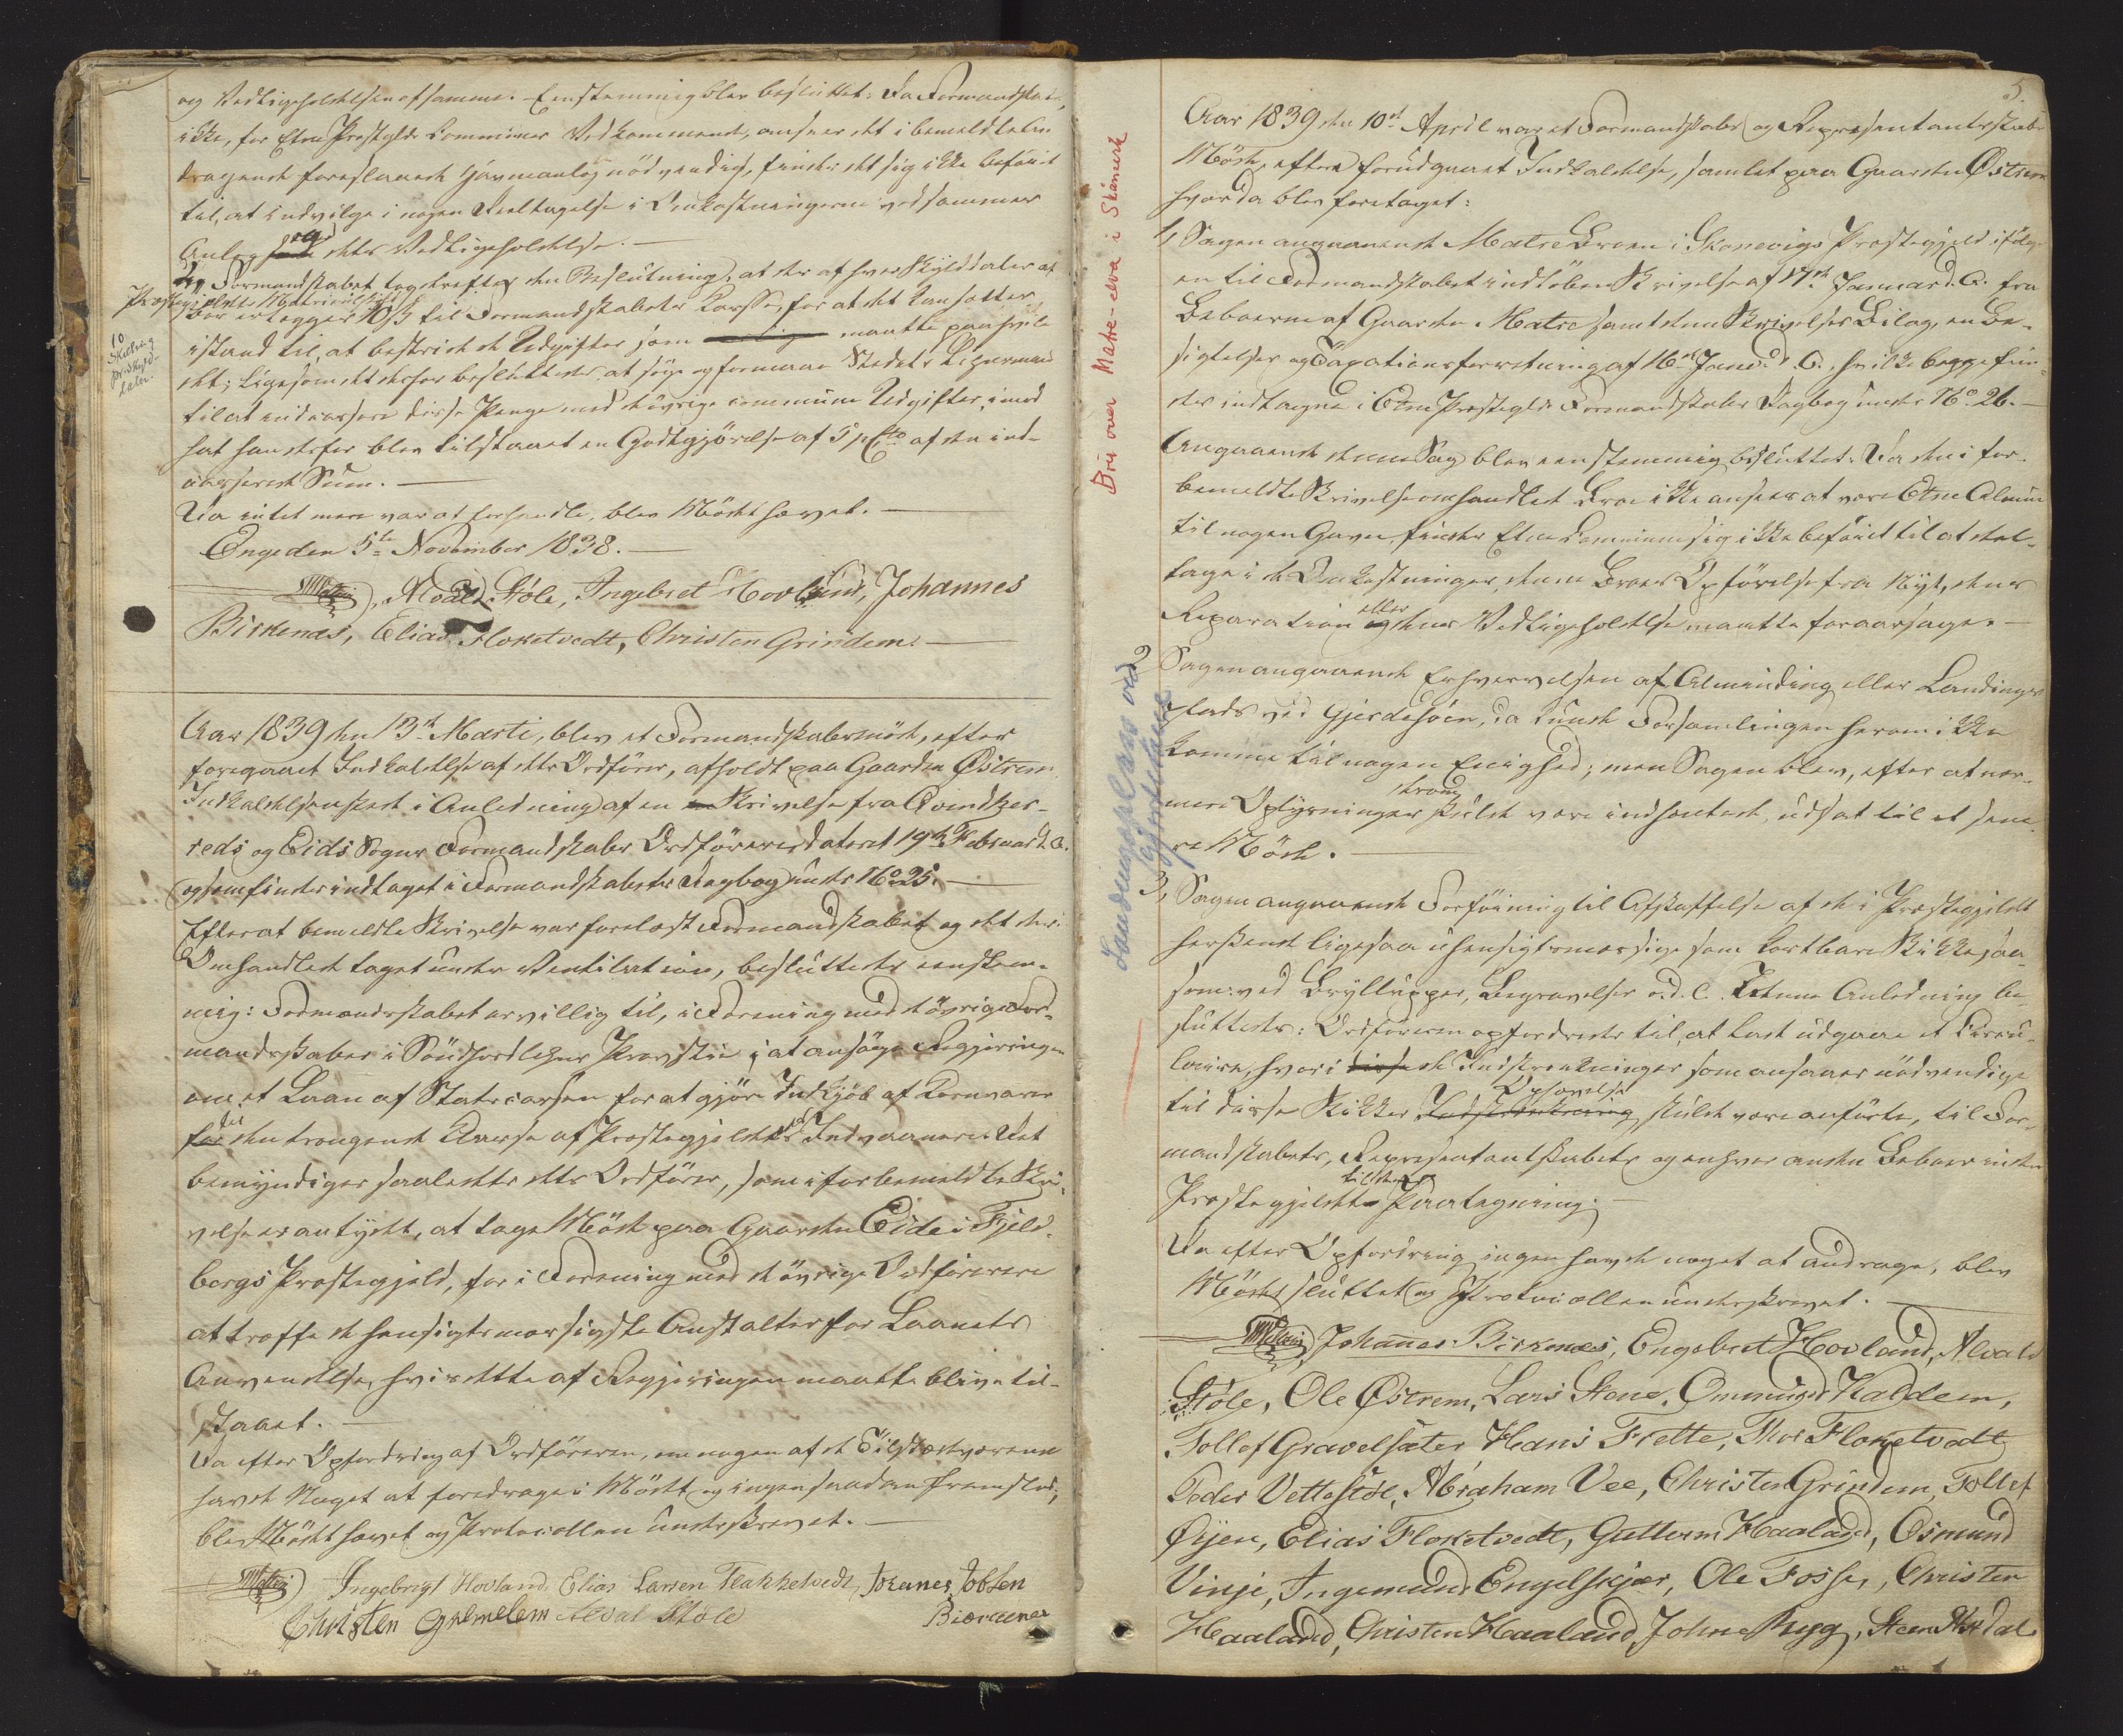 og Vedligeholdelsen af samme. Eenstemmig blev besluttet: Da Formandskabet
ikke, for Etne Præstgjelds Communes Vedkommende, anseer det i bemeldte An-
dragende foreslaaede gavnlig og nödvendig, finder det sig ikke beföiet
til, at indvilge i nogen Deeltagelse i Omkostningerne ved sammes
Anlæg og dets Vedligeholdelse.
Formandskabet tog derefter den Beslutning, at der af hver Skylddaler af
Præstegjeldets Matriculskyld
bör erlægges 10 ß til Formandskabets Casse, for at det kan sættes
10
Skilling
pr. skyld-
daler.
istand til, at bestride de Udgifter som maatte paahvile
det; ligesom det derfor besluttedes at söge og formaae Stedets Lensmand
til at indcassere disse Penge med de övrige commune Udgifter, imod
at han derfor blev tilstaaet en Godtgjörelse af 5 pCto af den ind-
casserede Sum.
Da intet mere var at forhandle, blev Mödet hævet.
Enge den 5te November 1838.
Alvald Stöle, Ingebret Hovland, Johannes
Birkenæs, Elias Floketvedt, Christen Grindem.
Aar 1839 den 13de Marti, blev et Formandskabsmöde, efter
foregaaet Indkaldelse af dets Ordförer, afholdt paa Gaarden Östrem.
Indkaldelsen skede i Anledning af en Skrivelse fra Qvindher-
reds og Eids Sognes Formandskabers Ordförere, dateret 19de Februar d. A.
og som findes indtaget i Formandskabets Dagbog under No 25.
Efterat bemeldte Skrivelse var forelæst Formandskabet og det deri
Omhandlede taget under Ventilation, besluttedes eenstem-
mig: Formandskabet er villig til, i Forening med de övrige For-
mandskaber i Söndhordlehns Provstie, at ansöge Regjeringen
om et Laan af Statscassen for at gjöre Indkjöb af Kornvarer
til
for den trængende Classe af Præstegjeldets Indvaanere. Det
bemyndiger saaledes dets Ordförer, som i forbemeldte Skri-
velse er antydet, at tage Möde paa Gaarden Eide i Fjeld-
bergs Præstegjeld, for i Forening med de övrige Ordförere
at træffe de hensigtsmæssigste Anstalter for Laanets
Anvendelse, hvis dette af Regjeringen maatte blive til-
staaet.
Da efter Opfordring af Ordföreren, om nogen af de Tilstedeværende
havde Noget at foredrage i Mödet, og ingen saadan fremstod,
blev Mödet hævet og Protocollen underskrevet.
Ingebrigt Hovland Elias Larsen Flakketvedt, Johanes Jobsen
Christen Grindem Alval Stöle Biörcenes
5.
Aar 1839 den 10de April var et Formandskabs og Repræsentantskabs
Möde, efter forudgaaet Indkaldelse, samlet paa Gaarden Östrem
hvor da blev foretaget:
Bru over Matre-elva i Skånevik
1, Sagen angaaende Matre Broen i Skonevigs Præstegjeld ifölge
en til Formandskabet indlöben Skrivelse af 17de Januar d. A. fra
Beboerne af Gaarden Matre samt denne Skrivelses Bilag, en Be-
sigtelses og Taxationsforretning af 16de Janr. d. A., hvilke begge fin-
des indtagne i Etne Præstegjelds Formandskabs Dagbog under No 26.
Angaaende denne Sag blev eenstemmig besluttet: Da den i for-
bemeldte Skrivelse omhandlede Broe ikke ansees at være Etne Almue
til nogen Gavn finder Etne Commune sig ikke beföiet til at del-
tage i de Omkostninger, denne Broes Opförelse fra Nyt, dens
Reparation eller dens Vedligeholdelse maatte foraarsage.
Landingsplass ved
Gjerdesöen
2 Sagen angaaende Erhvervelsen af Alminding eller Landings-
plads ved Gjerdesöen, da kunde Forsamlingen herom ikke
komme til nogen Enighed; men Sagen blev, efter at nær-
herom
mere Oplysninger skulde være indhentede, udsat til et sene-
re Möde.
3, Sagen angaaende Forföining til Afskaffelse af de i Præstegjeldet
herskende ligesaa uhensigtsmæssige som kostbare Skikke, saa-
som: ved Bryllupper, Begravelser o. d. l. I denne Anledning be-
sluttedes: Ordföreren opfordredes til, at lade udgaae et Circu-
laire, hvori de Indskrænkninger som ansaaes nödvendige
Ophævelse
til disse Skikkes Indskrænkning skulde være anförte, til For-
mandskabets, Repræsentantskabets og enhver anden Beboer inden
Præstegjeldets Paategning.
Da efter Opfordring ingen havde noget at andrage, blev
Mödet sluttet og Protocollen underskrevet.
Johanes Birkenæs, Engebret Hovland, Alvald
Stöle, Ole Östrem, Lars Stene, Ommund Kaldem,
Tollef Gravelsæter, Hans Frette, Thor Floketvedt,
Peder Vettestöl, Abraham Vee, Christen Grindem, Tollef
Öyjen, Elias Floketvedt, Guttorm Haaland, Osmund
Vinje, Ingemund Engelskjær, Ole Fosse, Christen
Haaland, Christen Haaland, Johne Rygg, Steen Aardal